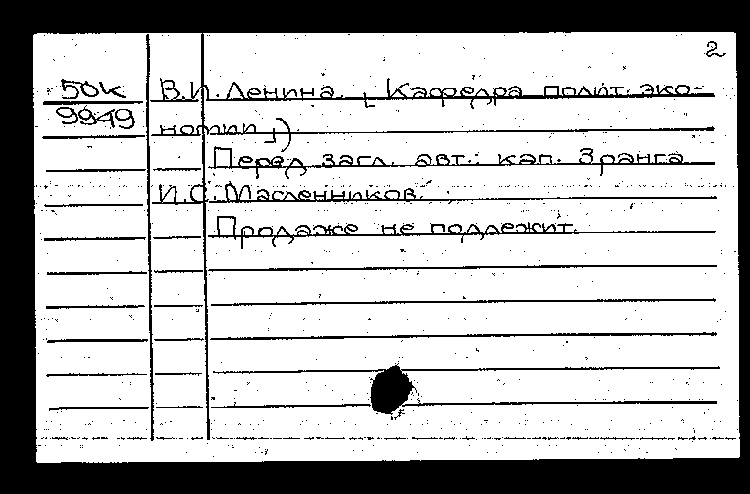 2
50к В.И. Ленина. [Кафедра полит. эко-
9949 номии])
Перед загл. авт.: кап. 3 ранга
И.С. Масленников.
Продаже не подлежит.